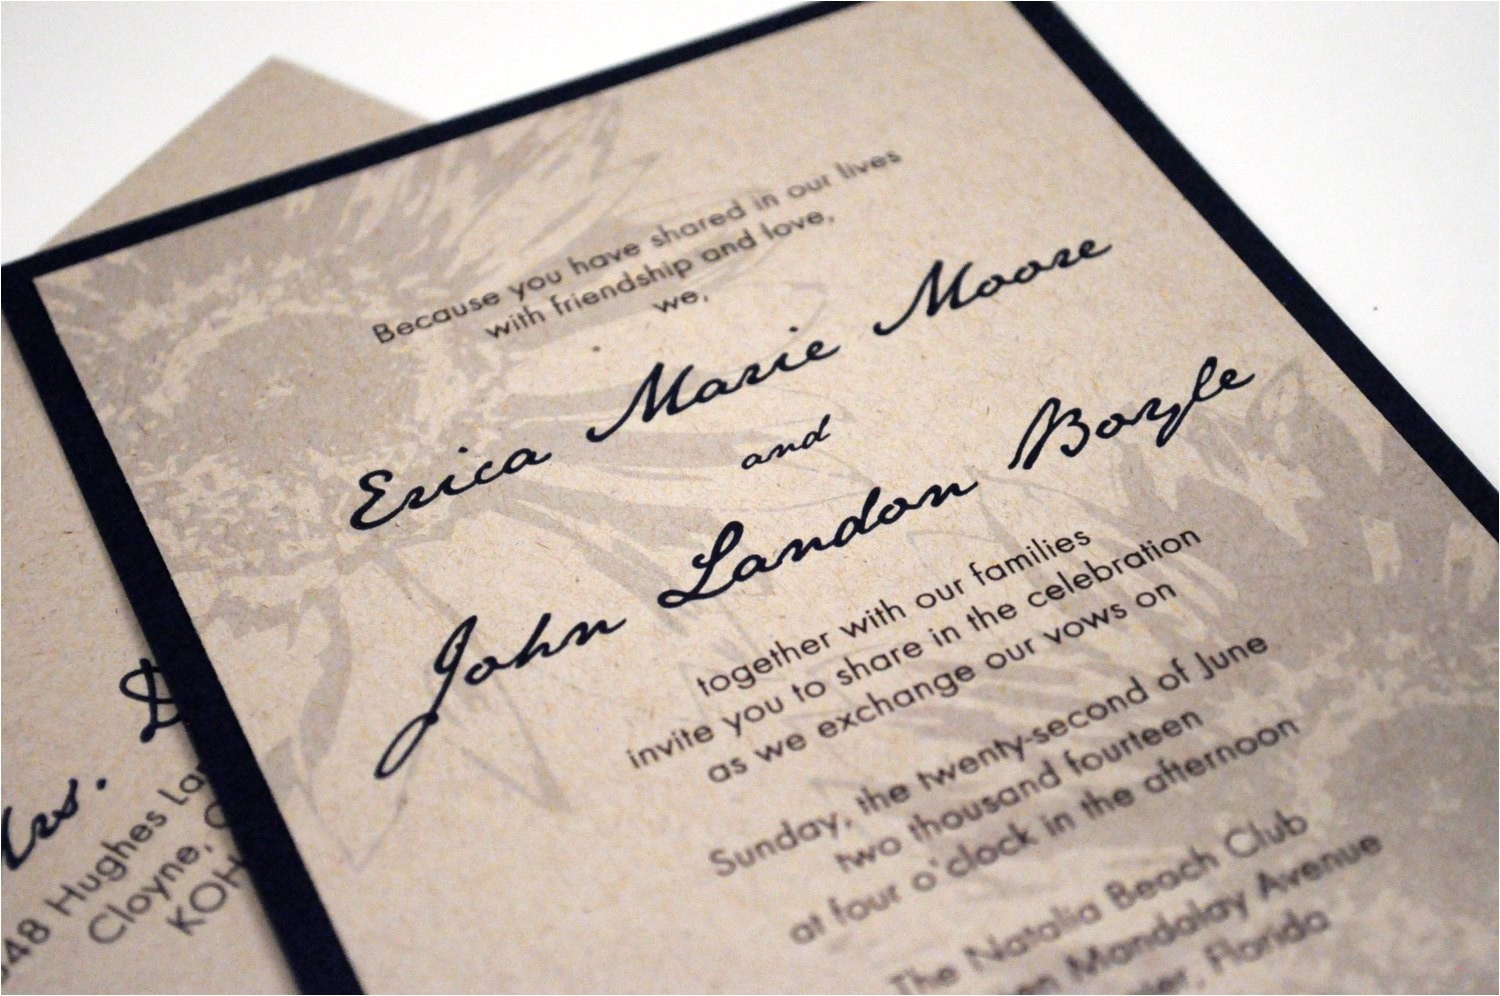 Because you have shared in our lives
with friendship and love,
we,
Erica Marie Moore
and
John Landon Boyle
together with our families
invite you to share in the celebration
as we exchange our vows on
Sunday, the twenty-second of June
two thousand fourteen
at four o'clock in the afternoon
The Natalia Beach Club
Mandalay Avenue
Florida
Hughes
Cloyne,